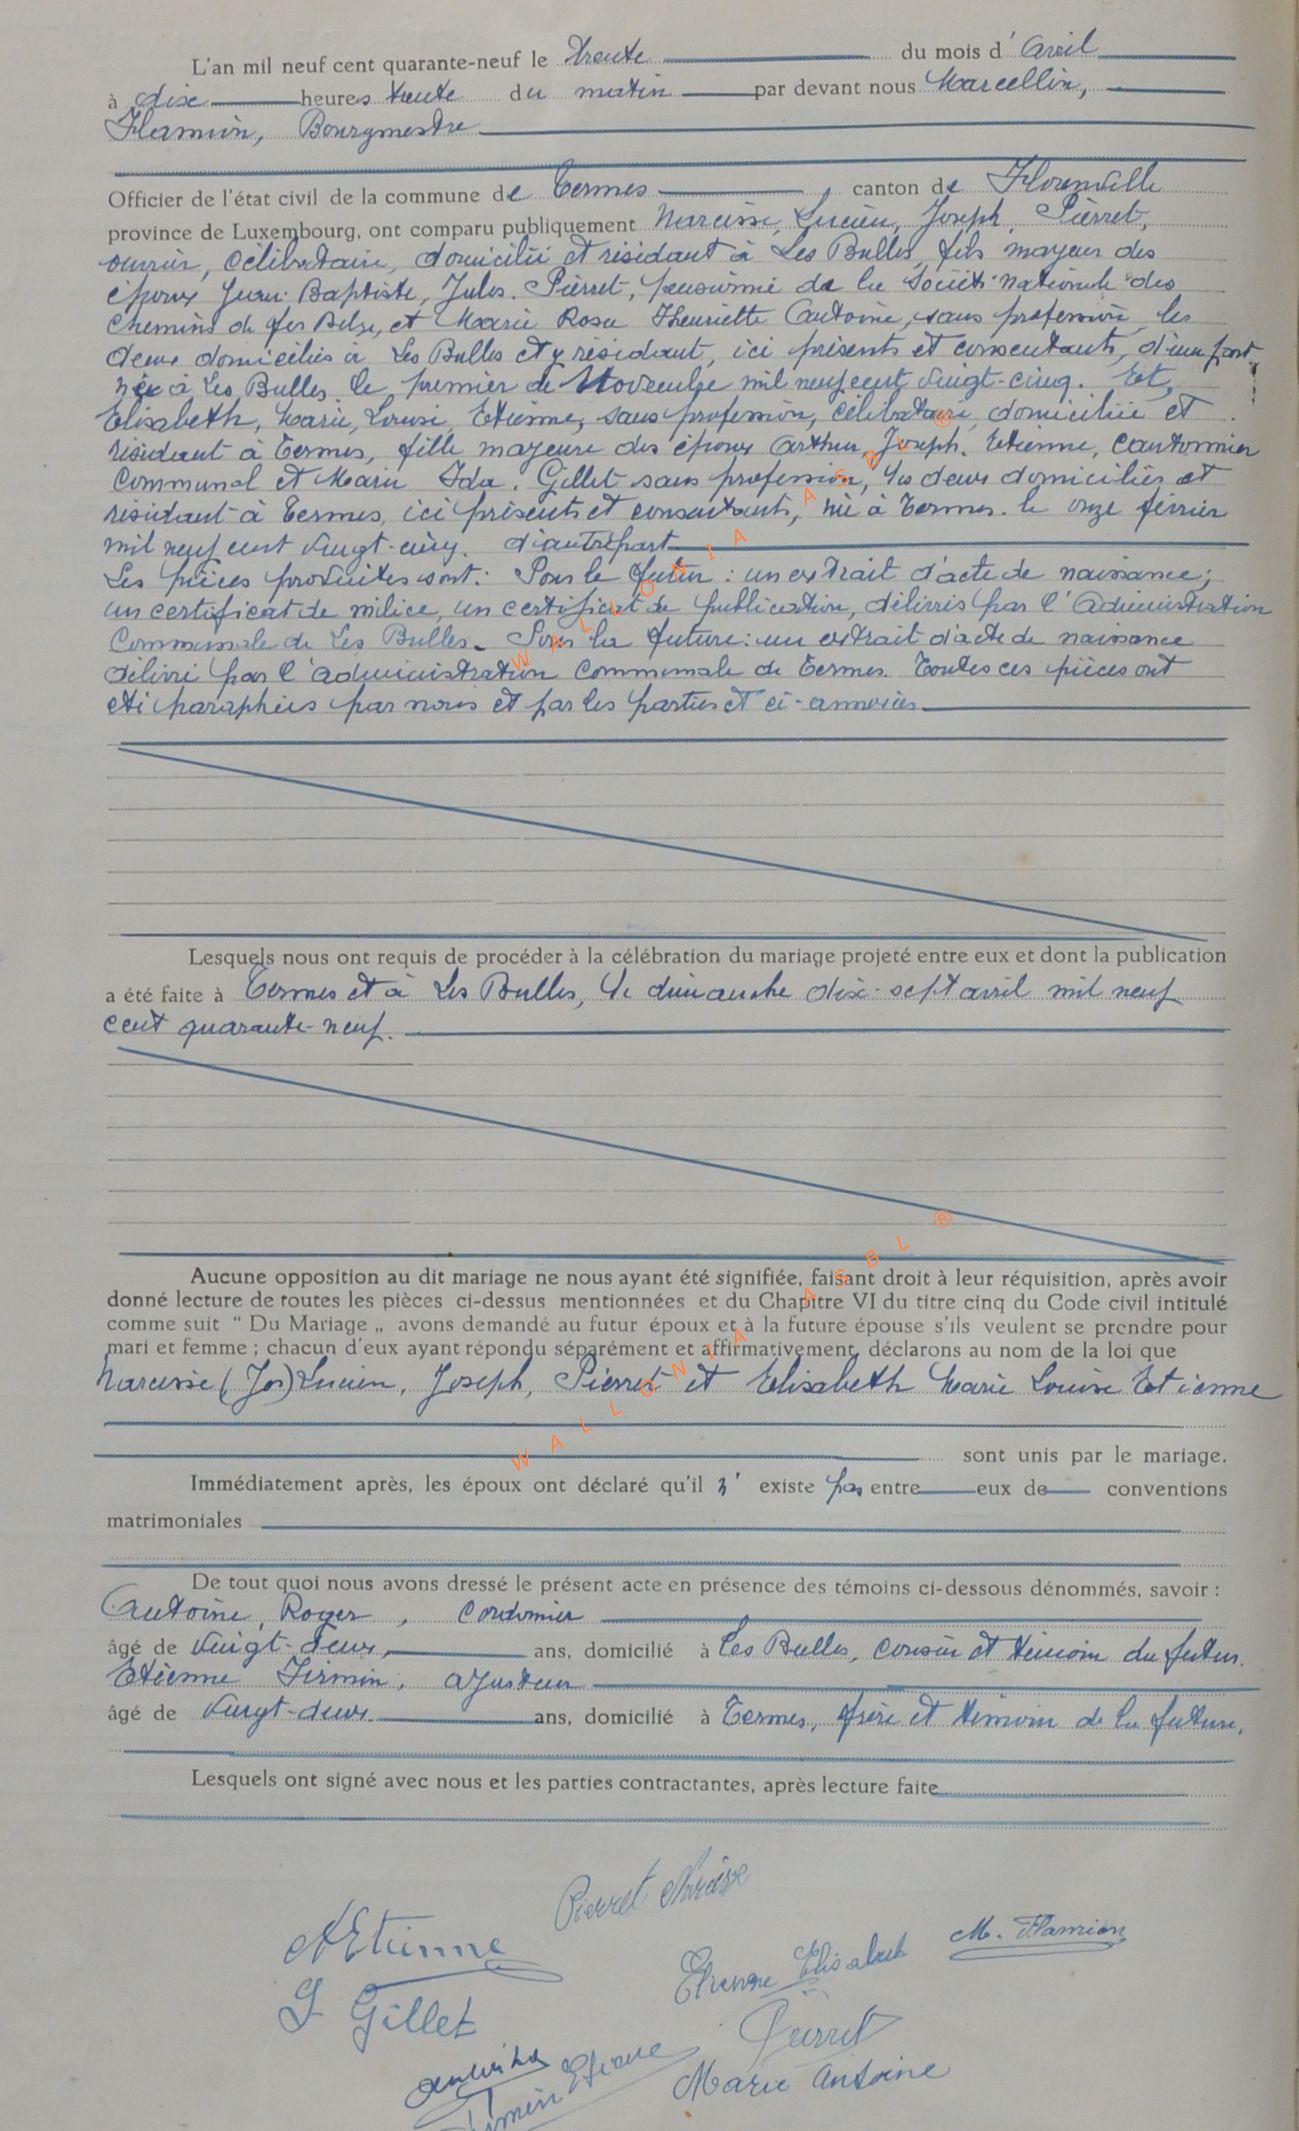 L'an mil neuf cent quarante-neuf le trente du mois d'Avril
à dix heures trente du matin par devant nous Marcellin,
Flamion, Bourgmestre
Officier de l'état civil de la commune de Termes, canton de Florenville
province de Luxembourg, ont comparu publiquement Narcisse, Lucien, Joseph, Pierret,
ouvrier, célibataire, domicilié et résidant à Les Bulles, fils majeur des
époux Jean-Baptiste, Jules. Pierret, pensionné de la Société nationale des
Chemins de fer Belge, et Marie Rosa Henriette Antoine, sans profession, les
deux domiciliés à Les Bulles et y résidant, ici présents et consentants, d'une part,
né à Les Bulles, le premier de Novembre mil neuf cent vingt-cinq. Et,
Elisabeth, Marie, Louise, Etienne, sans profession, célibataire, domiciliée et
résidant à Termes, fille majeure des époux Arthur, Joseph. Etienne, cantonnier
communal et Marie Ida. Gillet sans profession, les deux domiciliés et
résidant à Termes, ici présents et consentants, née à Termes. le onze février
mil neuf cent vingt-cinq. d'autre part
Les pièces produites sont: Pour le futur: un extrait d'acte de naissance;
un certificat de milice, un certificat de publication, délivrés par l'Administration
Communale de Les Bulles. Pour la future: un extrait d'acte de naissance
délivré par l'administration communale de Termes. Toutes ces pièces ont
été paraphées par nous et par les parties et ci-annexées
Lesquels nous ont requis de procéder à la célébration du mariage projeté entre eux et dont la publication
a été faite à Termes et à Les Bulles, le dimanche dix-sept avril mil neuf
cent quarante-neuf.
Aucune opposition au dit mariage ne nous ayant été signifiée, faisant droit à leur réquisition, après avoir
donné lecture de toutes les pièces ci-dessus mentionnées et du Chapitre VI du titre cinq du Code civil intitulé
comme suit “ Du Mariage „ avons demandé au futur époux et à la future épouse s'ils veulent se prendre pour
mari et femme ; chacun d'eux ayant répondu séparément et affirmativement, déclarons au nom de la loi que
Narcisse (Jos) Lucien, Joseph, Pierret et Elisabeth Marie Louise Etienne
sont unis par le mariage.
Immédiatement après, les époux ont déclaré qu'il n' existe pas entre eux de conventions
matrimoniales
De tout quoi nous avons dressé le présent acte en présence des témoins ci-dessous dénommés, savoir :
Antoine, Roger, Cordonnier
âgé de vingt-deux, ans, domicilié à Les Bulles, cousin et témoin du futur.
Etienne Firmin, ajusteur
âgé de vingt-deux. ans, domicilié à Termes, frère et témoin de la future.
Lesquels ont signé avec nous et les parties contractantes, après lecture faite
Pierret Narcisse
A Etienne
M. Flamion
Etienne Elisabeth
I Gillet
Pierret
Firmin Etienne
Marie Antoine
WALLONIA ASBL ®
WALLONIA ASBL ®